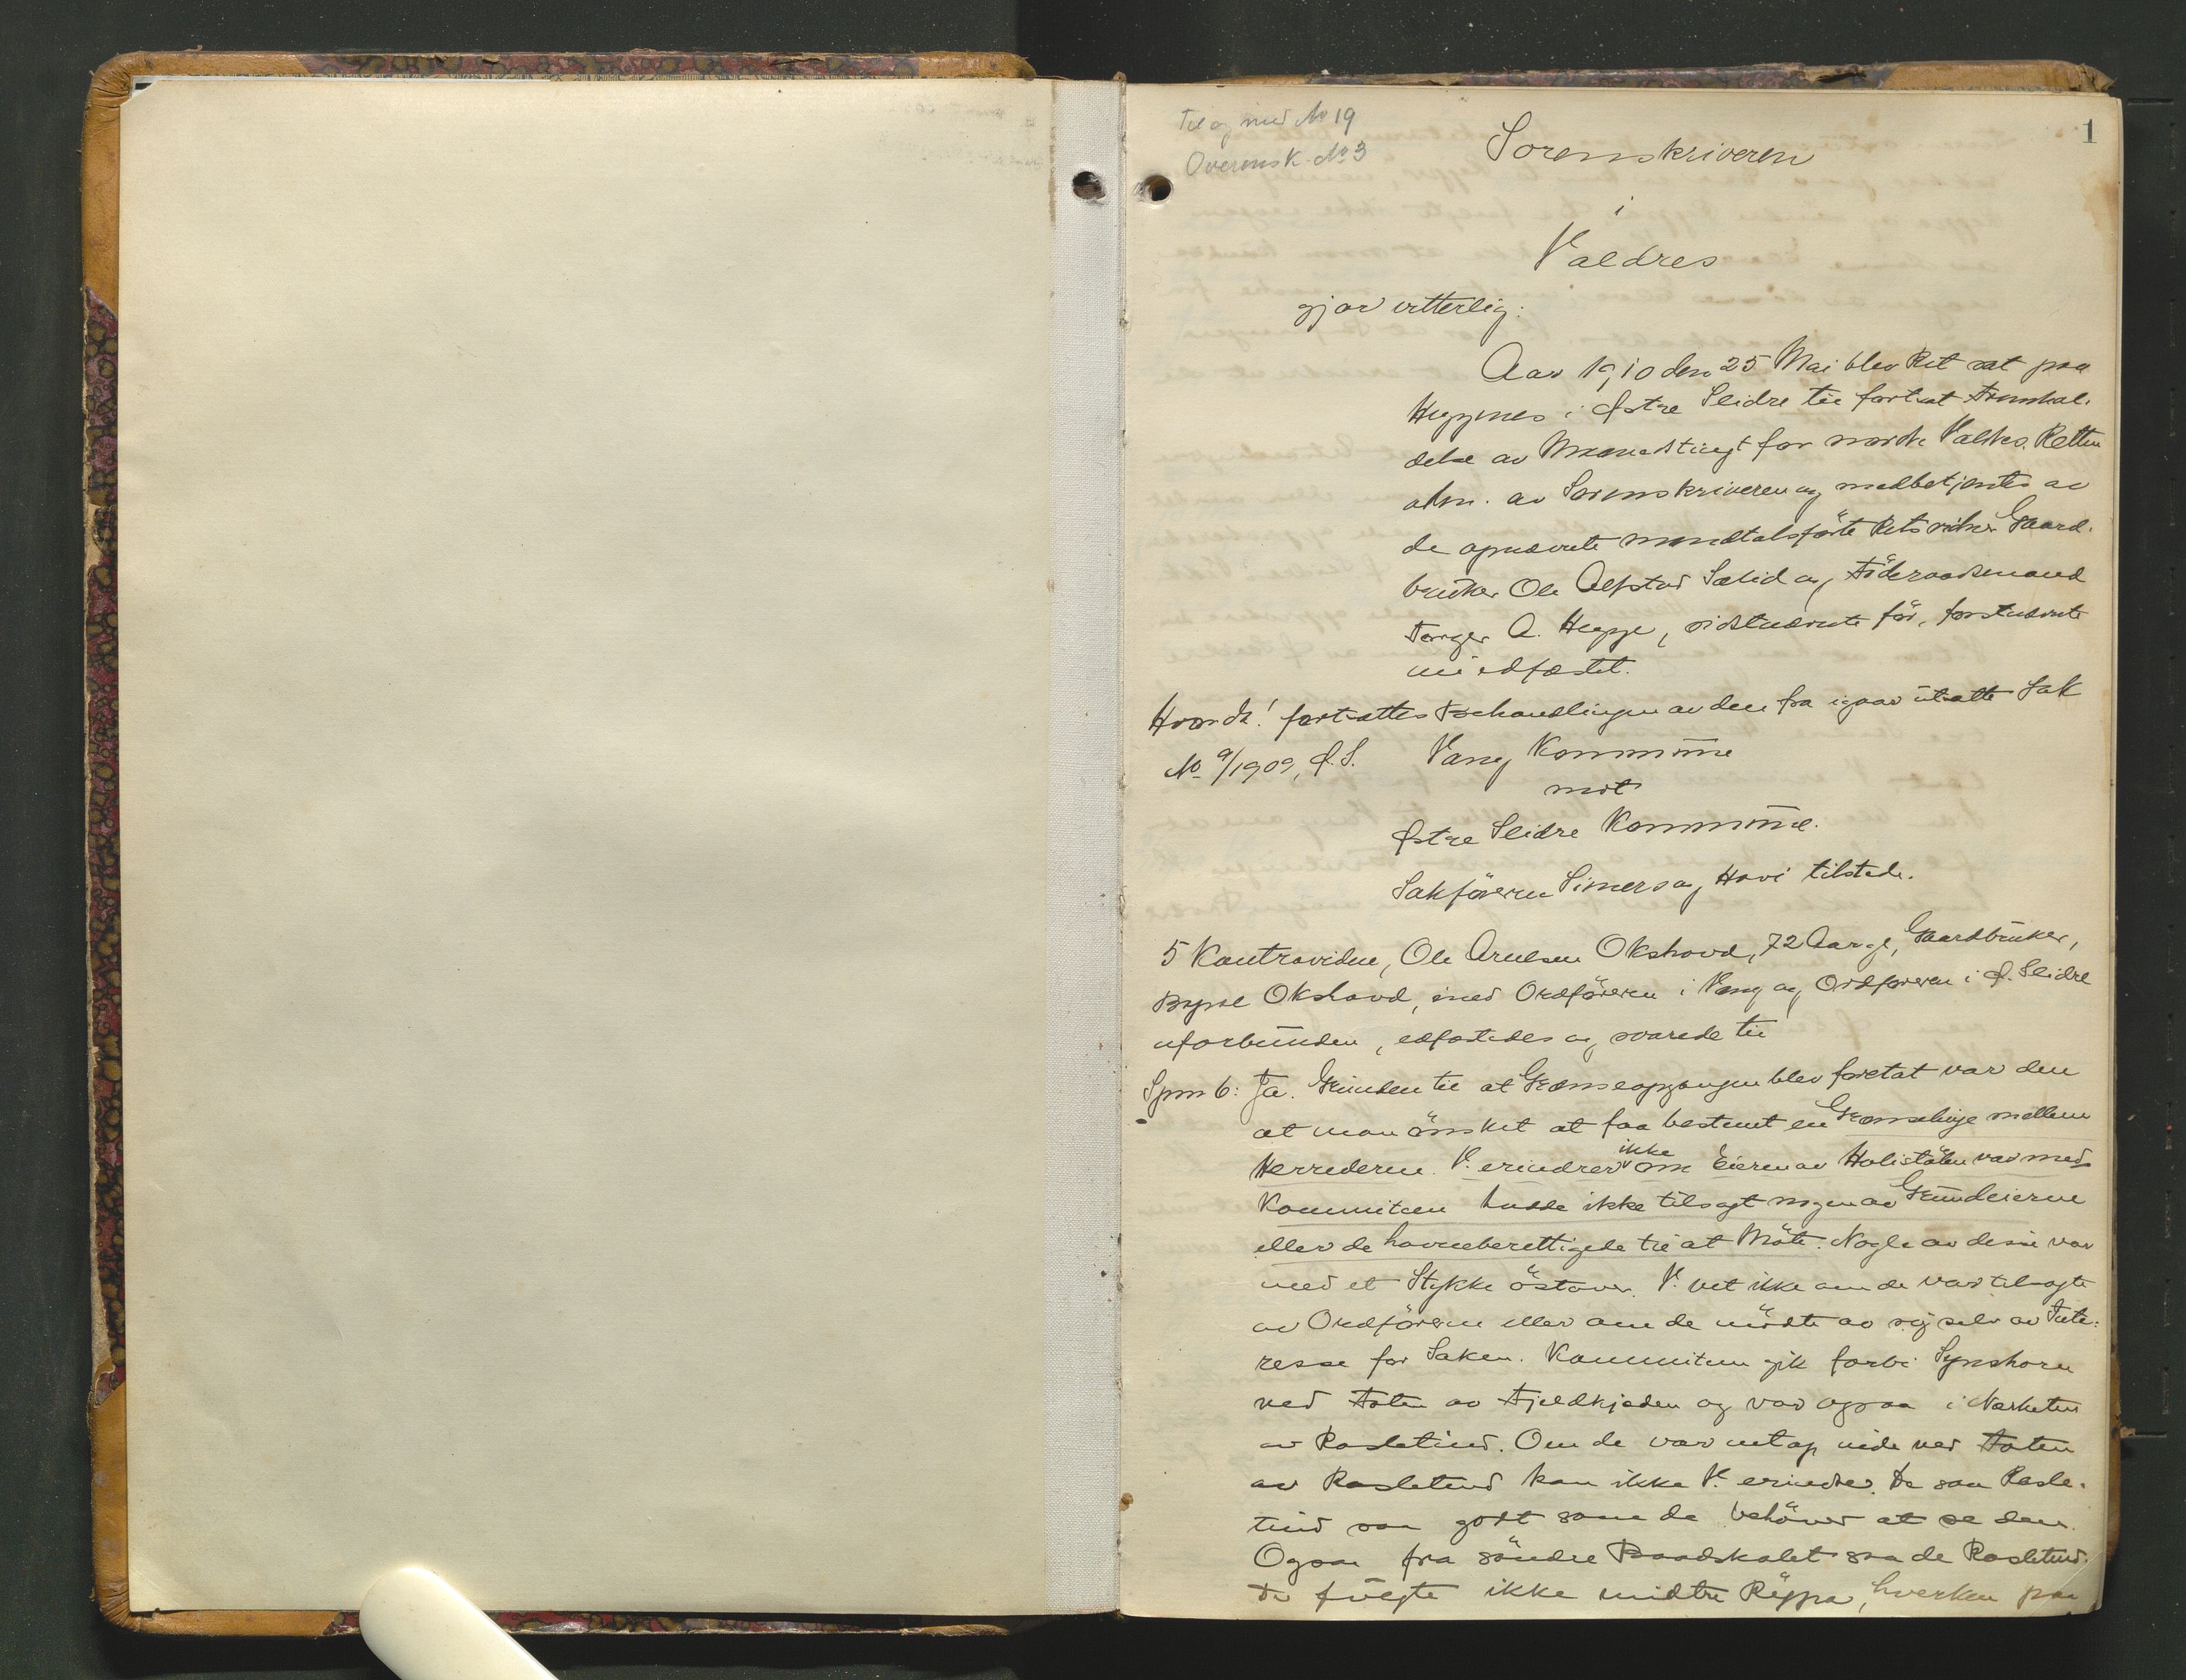 Til og med No 19
Overensk. No 3
1
Sorenskriveren
i
Valdres
gjør vitterlig:
Aar 1910 den 25 Mai blev Ret sat paa
Heggenes i Østre Slidre til fortsat Avhol-
delse av Maanedsting for nordre Valdres. Retten
adm. av Sorenskriveren og medbetjentes av
de opnævnte mandtalsførte Retsvidner Gaard-
bruker Ole Alfstad Sælid og Föderaadsmand
Torger A. Hegge, sidstnævnte för, förstnævnte
nu edfæstet.
Hvorda! fortsattes Behandlingen av den fra igaar utsatte Sak
No 9/1909, Ø.S. Vang Kommune
mot
Østre Slidre Kommune.
Sakförerne Simers og Hovi tilstede.
5 Kontravidne, Ole Arnesen Okshovd, 72 Aar gl, Gaardbruker,
Bopæl Okshovd, med Ordföreren i Vang og Ordföreren i Ø. Slidre
uforbunden, edfæstedes og svarede til
Spm 6: Ja. Grunden til at Grænseopgangen blev foretat var den
at man önsket at faa bestemt en Grænselinje mellem
Herrederne. V. erindrer ikke om Eieren av Holistölen var med
Kommiteen hadde ikke tilsagt nogen av Grundeierne
eller de havneberettigede til at Möte. Nogle av disse var
med et Stykke östover. V. vet ikke om de var tilsagte
av Ordföreren eller om de mödte av sig selv av Inte-
resse for Saken. Kommiteen gik forbi Synshorn
ved Foten av Fjeldkjæden og var ogsaa i Nærheten
av Rasletind. Om de var netop nede ved Foten
av Rasletind kan ikke V. erindre. De saa Rasle-
tind saa godt som de behöver at se den.
Ogsaa fra söndre Baadskalet saa de Rasletind.
De fulgte ikke midtre Rüppa, hverken paa